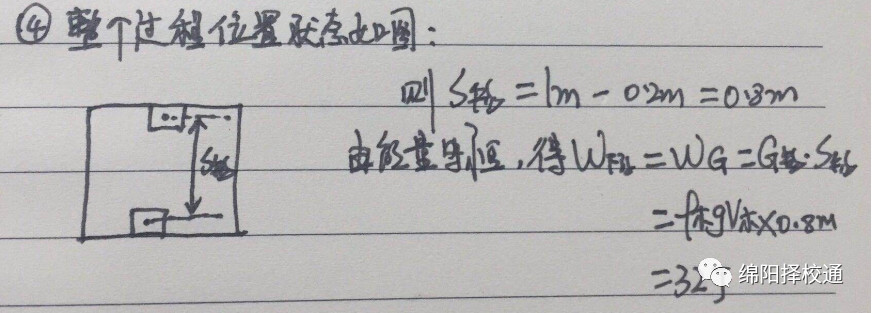 ④ 整个过程位置状态如图：
则 S移 = 1m - 0.2m = 0.8m
由能量守恒，得 W = WG = G·S移
S移
= ρ木gV木×0.8m
= 32J
绵阳择校通